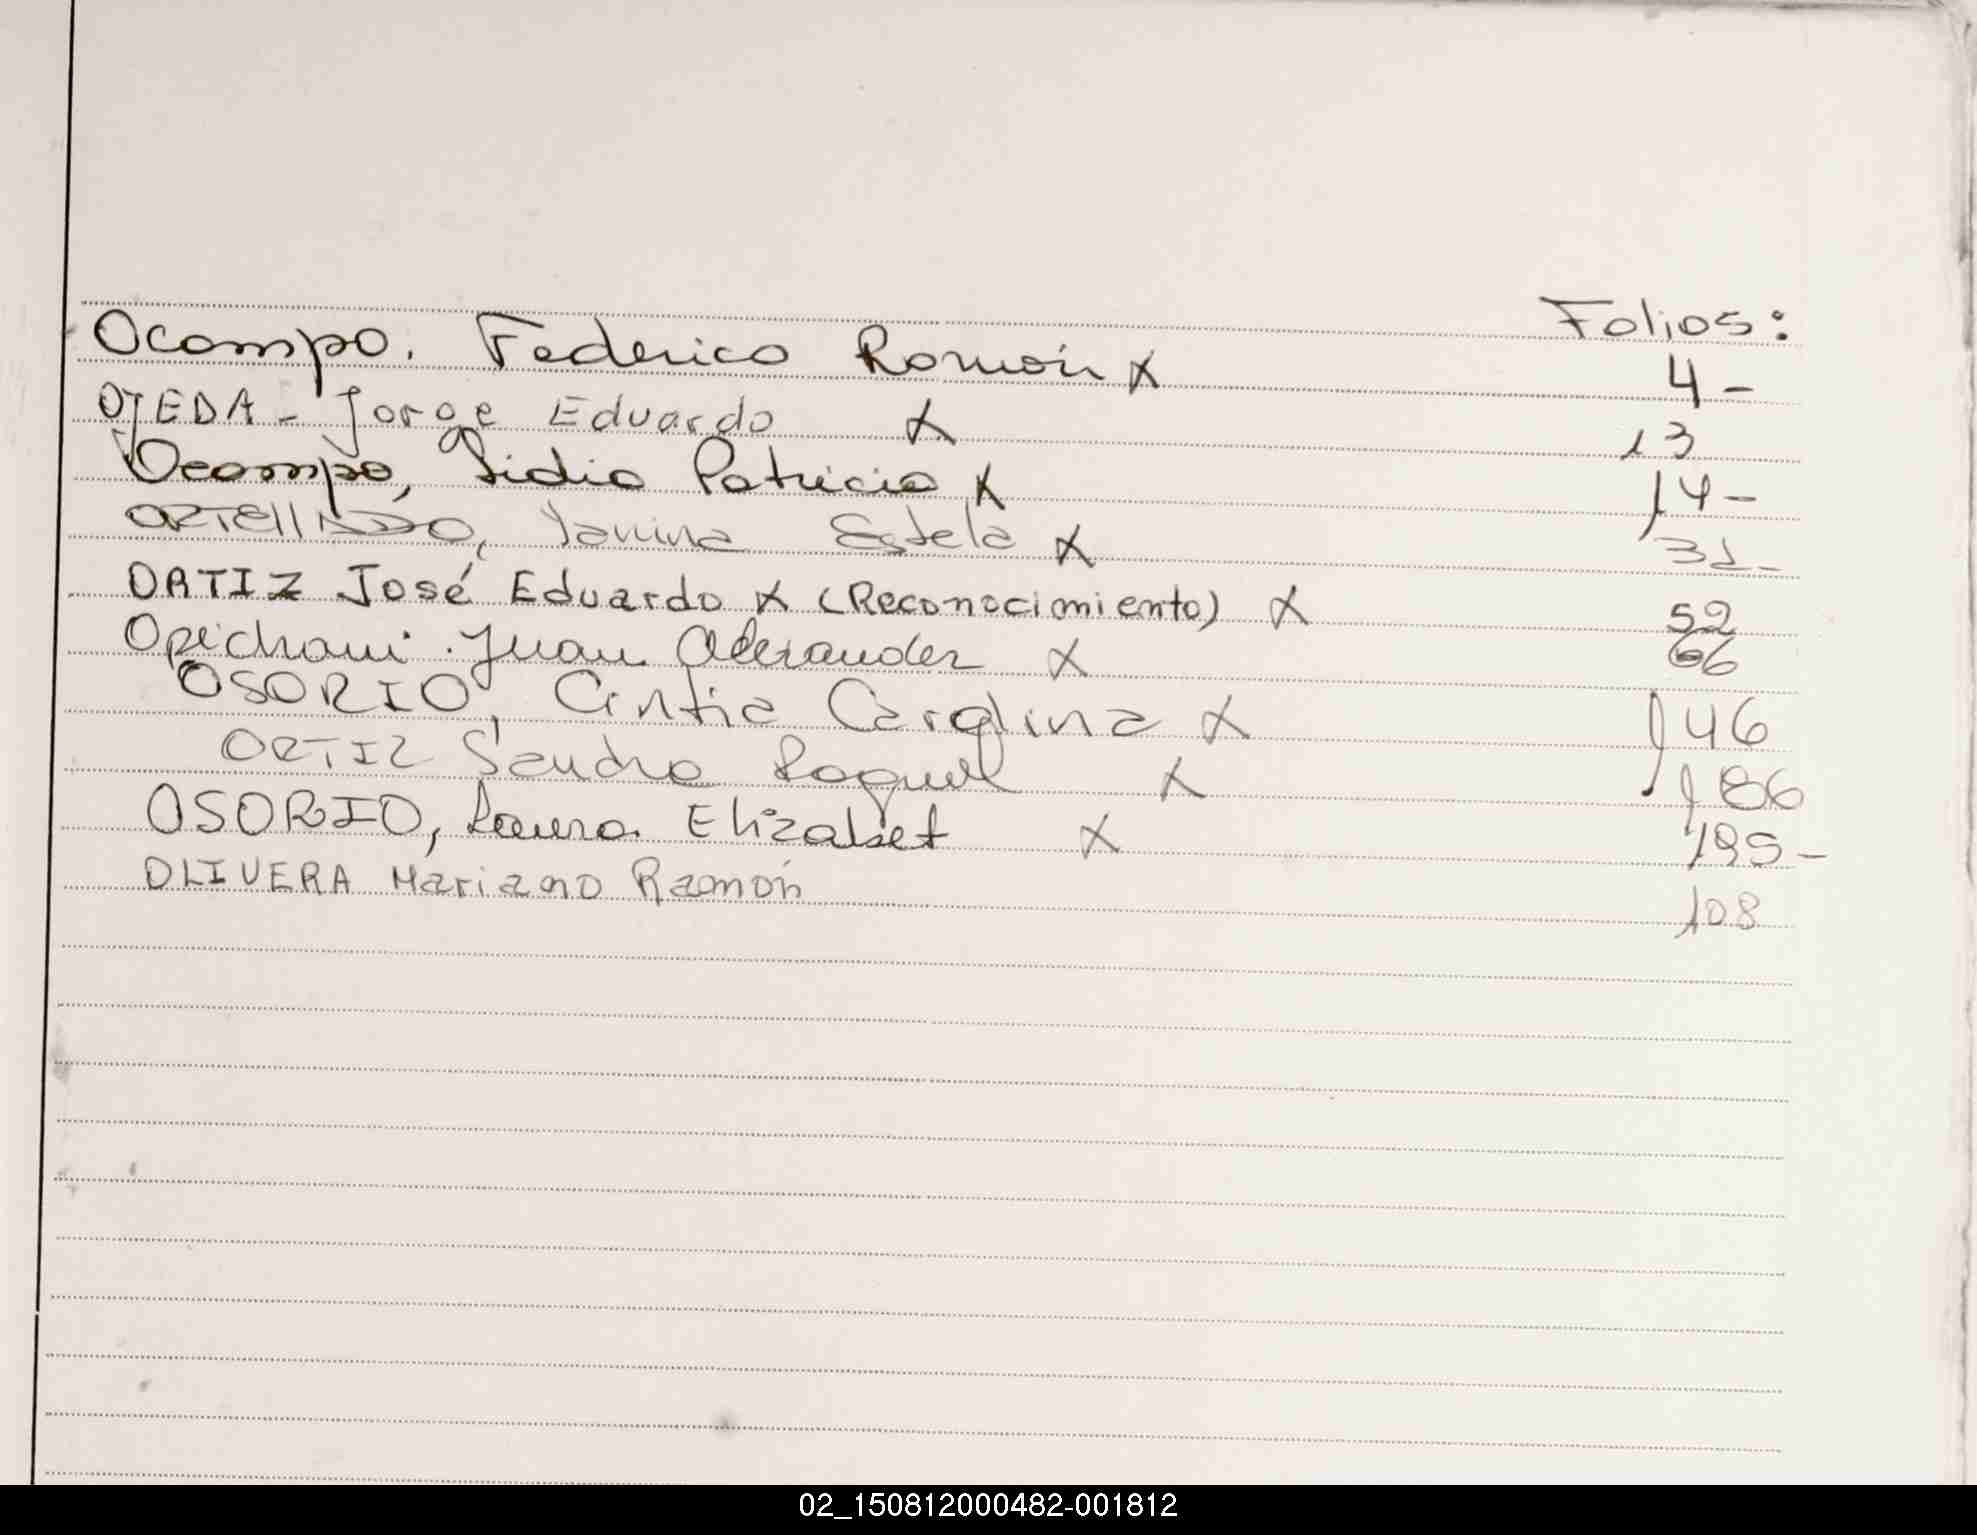 Folios:
Ocampo. Federico Ramón X 4-
OJEDA - Jorge Eduardo X 13
Ocampo, Lidia Patricia X 14-
ORTELLADO, Yanina Estela X 32-
ORTIZ José Eduardo X (Reconocimiento) X 52
Opichani. Juan Alexander X 66
OSORIO, Cintia Carolina X 146
ORTIZ Sandra Raquel X 186
OSORIO, Laura Elizabet X 195-
OLIVERA Mariano Ramón 108
02_150812000482-001812